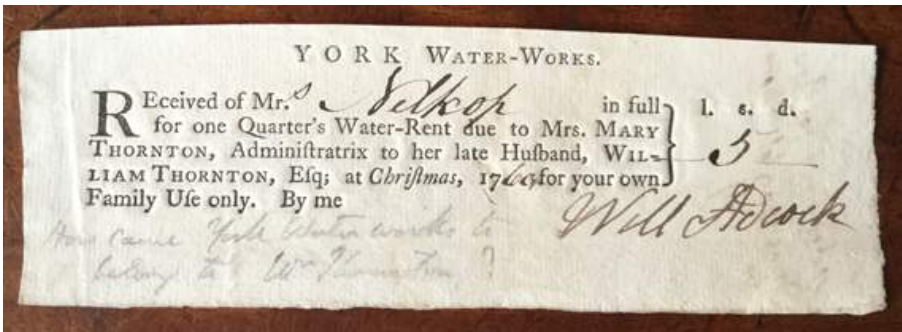 YORK WATER-WORKS.
REceived of Mr.s Nelkop in full l. s. d.
for one Quarter's Water-Rent due to Mrs. MARY
THORNTON, Adminiſtratrix to her late Huſband, WIL- 5
LIAM THORNTON, Eſq; at Chriſtmas, 17 for your own
Family Uſe only. By me Will Adcock
How came York Water works to
belong to Wm Thornton ?